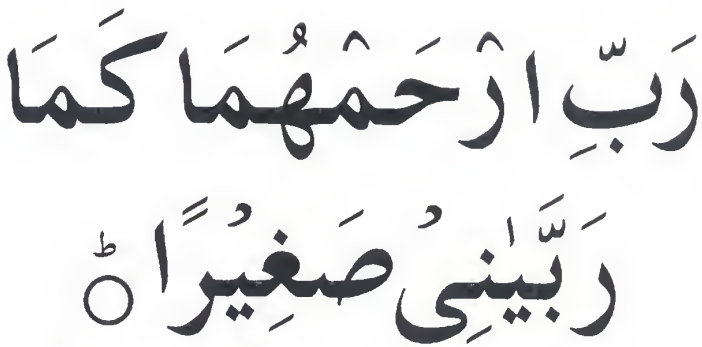 رَبِّ ارْحَمْهُمَا كَمَا
رَبَّيٰنِیْ صَغِيْرًا ؕ○